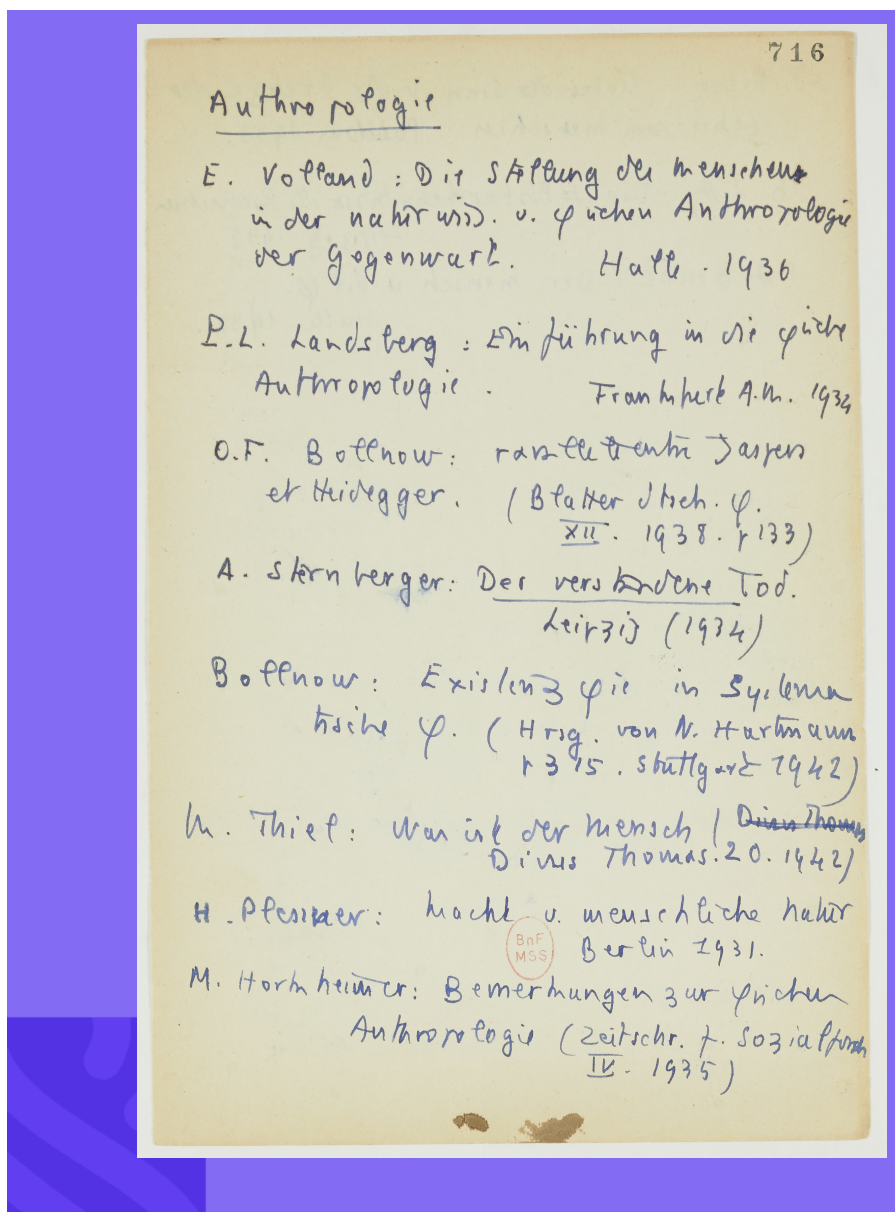 716
Anthropologie
E. Volland : Die Stellung des menschen
in der naturwiss. u. φischen Anthropologie
der Gegenwart. Halle . 1936
P.L. Landsberg : Einführung in die φische
Anthropologie . Frankfurt A.M. 1934
O.F. Bollnow : Jaspers
et Heidegger. (Blatter dtsch. φ.
XII . 1938 . p 133)
A. Sternberger : Der verstandene Tod.
Leipzig (1934)
Bollnow : Existenzφie in Systema
tische φ. (Hrsg. von N. Hartmann
p 315 . Stuttgard 1942)
M. Thiel : Was ist der mensch ( Divus Thomas
Divus Thomas . 20 . 1942)
H. Plessner : Macht u. menschliche natur
BnF
MSS
Berlin 1931.
M. Horkheimer : Bemerkungen zur φischen
Anthropologie (Zeitschr. f. Sozialforsch
IV . 1935)